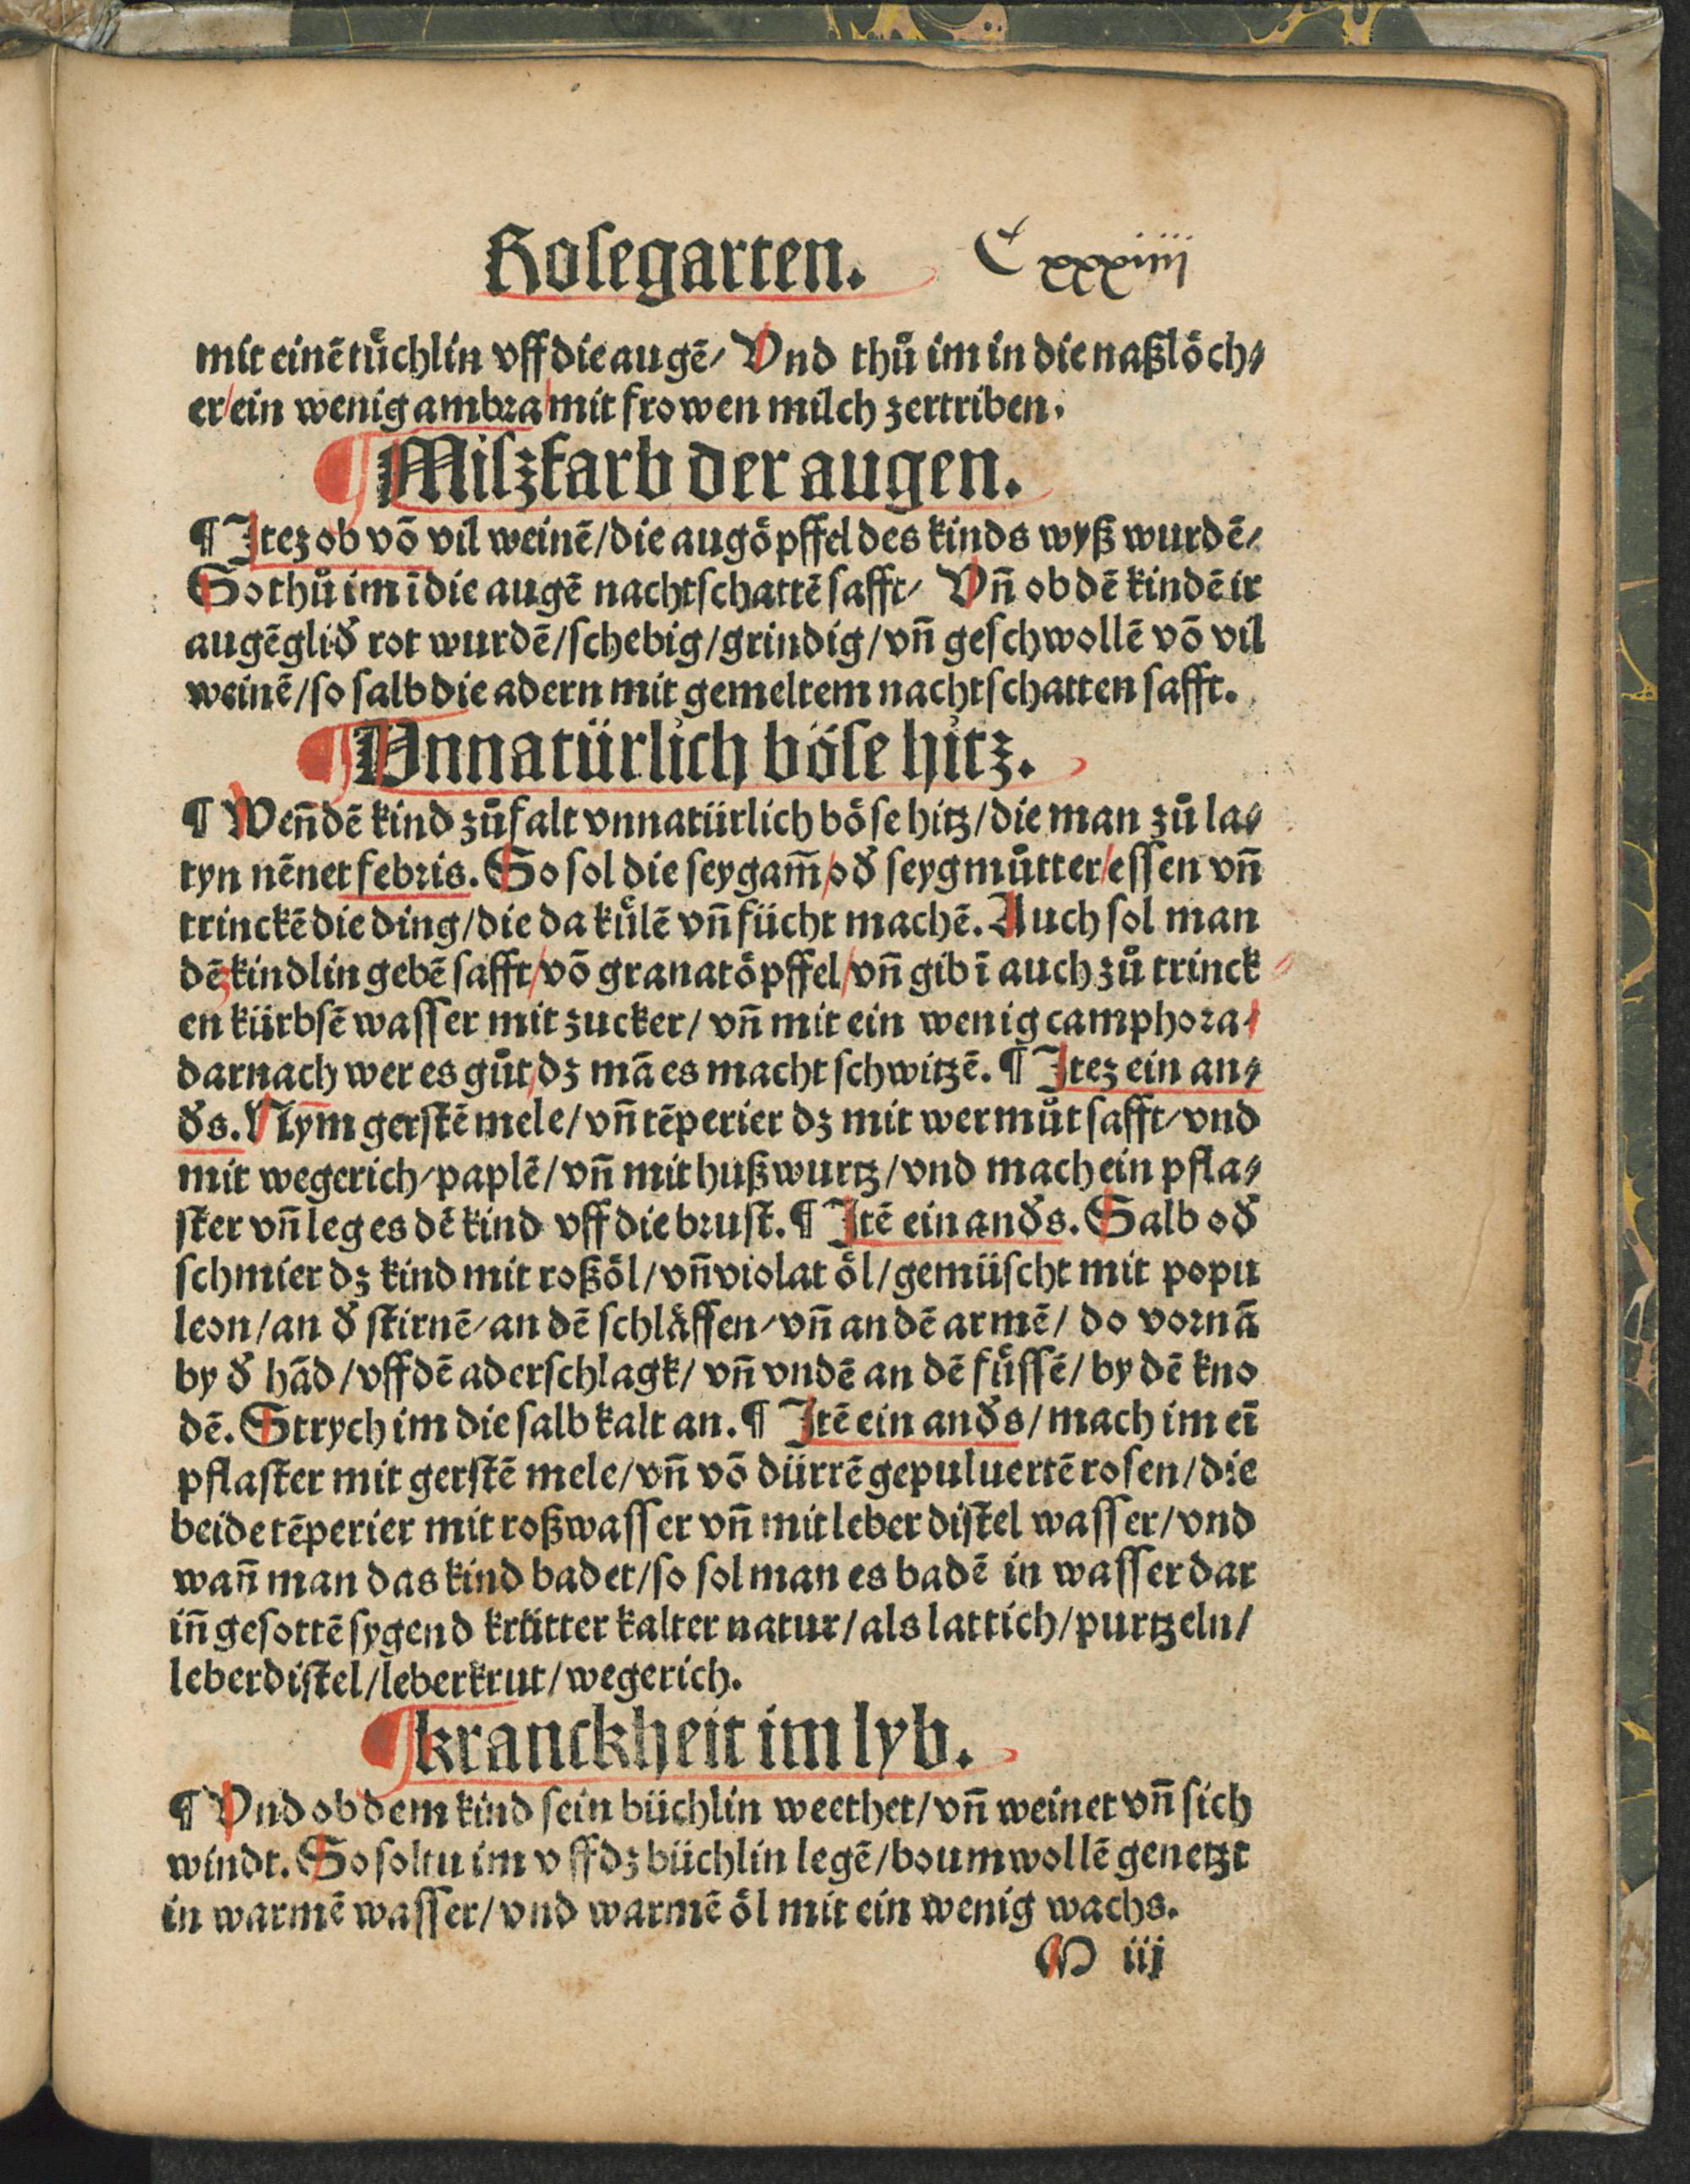 Roſegarten. Cxxxiiij
mit einē tuͤchlin vff die augē / Vnd thuͦ im in die naßloͤch⸗
er / ein wenig ambra / mit frowen milch zertriben.
¶ Milzfarb der augen.
¶ Itez ob vō vil weinē / die augoͤpffel des kinds wyß wurdē /
So thuͦ im ī die augē nachtſchattē ſafft / Vn̄ ob dē kindē ir
augēgliđ rot wurdē / ſchebig / grindig / vn̄ geſchwollē vō vil
weinē / ſo ſalb die adern mit gemeltem nachtſchatten ſafft.
¶ Vnnatürlich böſe hitz.
¶ Wen̄ dē kind zuͦfalt vnnatürlich boͤſe hitz / die man zuͦ la⸗
tyn nēnet febris. So ſol die ſeygam̄ / ođ ſeygmuͦtter / eſſen vn̄
trinckē die ding / die da kuͤlē vn̄ fücht machē. Auch ſol man
dēz kindlin gebē ſafft / vō granatoͤpffel / vn̄ gib ī auch zuͦ trinck /
en kürbſē waſſer mit zucker / vn̄ mit ein wenig camphora /
darnach wer es guͦt / dz mā es macht ſchwitzē. ¶ Itez ein an⸗
đs. Nym̄ gerſtē mele / vn̄ tēperier dz mit wermuͦt ſafft / vnd
mit wegerich / paplē / vn̄ mit hußwurtz / vnd mach ein pfla⸗
ſter vn̄ leg es dē kind vff die bruſt. ¶ Itē ein anđs. Salb ođ
ſchmier dz kind mit roßoͤl / vn̄ violat oͤl / gemüſcht mit popu
leon / an đ ſtirnē / an dē ſchlaͤffen / vn̄ an dē armē / do vornā
by đ hād / vff dē aderſchlagk / vn̄ vndē an dē fuͤſſē / by dē kno
dē. Strych im die ſalb kalt an. ¶ Itē ein anđs / mach im eī
pflaſter mit gerſtē mele / vn̄ vō dürrē gepuluertē roſen / die
beide tēperier mit roßwaſſer vn̄ mit leber diſtel waſſer / vnd
wan̄ man das kind badet / ſo ſol man es badē in waſſer dar
in̄ geſottē ſygend krütter kalter natur / als lattich / purtzeln /
leberdiſtel / leberkrut / wegerich.
¶ kranckheit im lyb.
¶ Vnd ob dem kind ſein büchlin weethet / vn̄ weinet vn̄ ſich
windt. So ſoltu im vff dz büchlin legē / boumwollē genetzt
in warmē waſſer / vnd warmē oͤl mit ein wenig wachs.
M iij